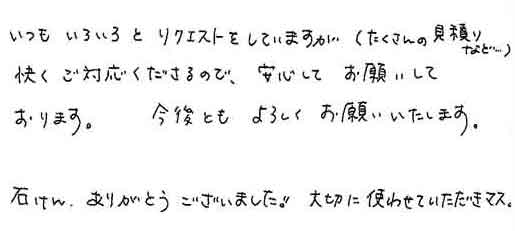 いつも いろいろと リクエストをしていますが (たくさんの見積りなど…)
快くご対応くださるので、安心して お願いして
おります。 今後とも よろしく お願いいたします。
石けん、ありがとうございました!! 大切に使わせていただきマス。